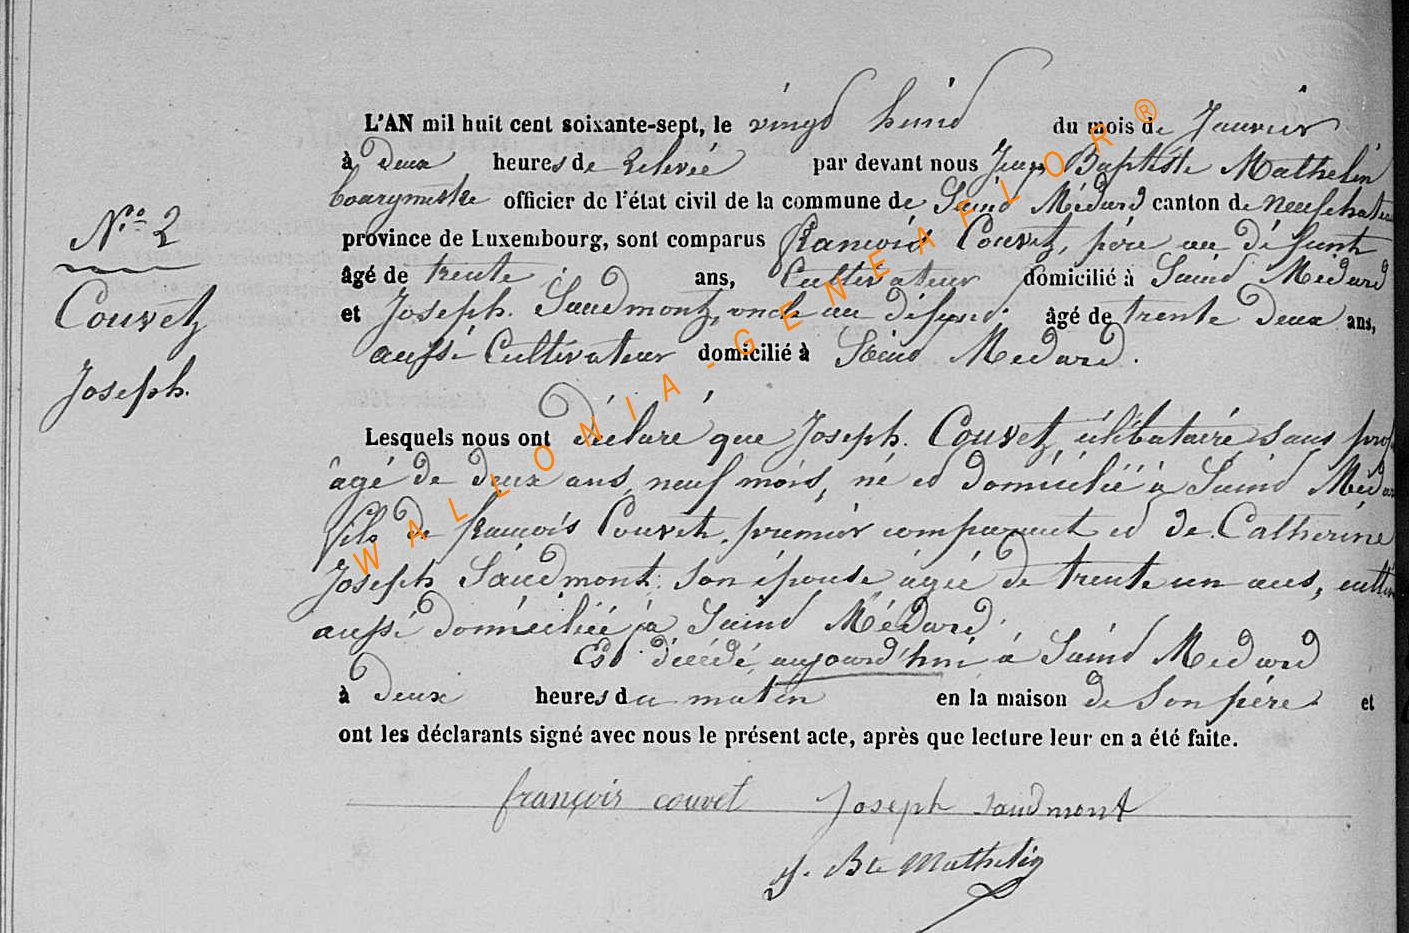 L'AN mil huit cent soixante-sept, le vingt huit du mois de Janvier
à Deux heures de Relevée par devant nous Jean Baptiste Mathelin
bourgmestre officier de l'état civil de la commune de Saint Médard canton de Neufchateau
province de Luxembourg, sont comparus François Couvet, père au défunt
âgé de trente ans, Cultivateur domicilié à Saint Médard
et Joseph Saudmont, oncle au défunt âgé de trente Deux ans,
aussi Cultivateur domicilié à Saint Médard.
N° 2
Couvet
Joseph.
Lesquels nous ont déclaré que Joseph Couvet, célibataire, sans prof
âgé de deux ans, neuf mois, né et domicilié à Saint Médar
fils de françois Couvet, premier comparant et de Catherine
Joseph Saudmont, son épouse âgée de trente un ans, cultiv
aussi domiciliée à Saint Médard.
Est décédé, aujourd'hui à Saint Médard
à Deux heures du matin en la maison de Son père et
ont les déclarants signé avec nous le présent acte, après que lecture leur en a été faite.
françois couvet Joseph saudmont
J. Bte Mathelin
WALLONIA-GENEAFLOR®